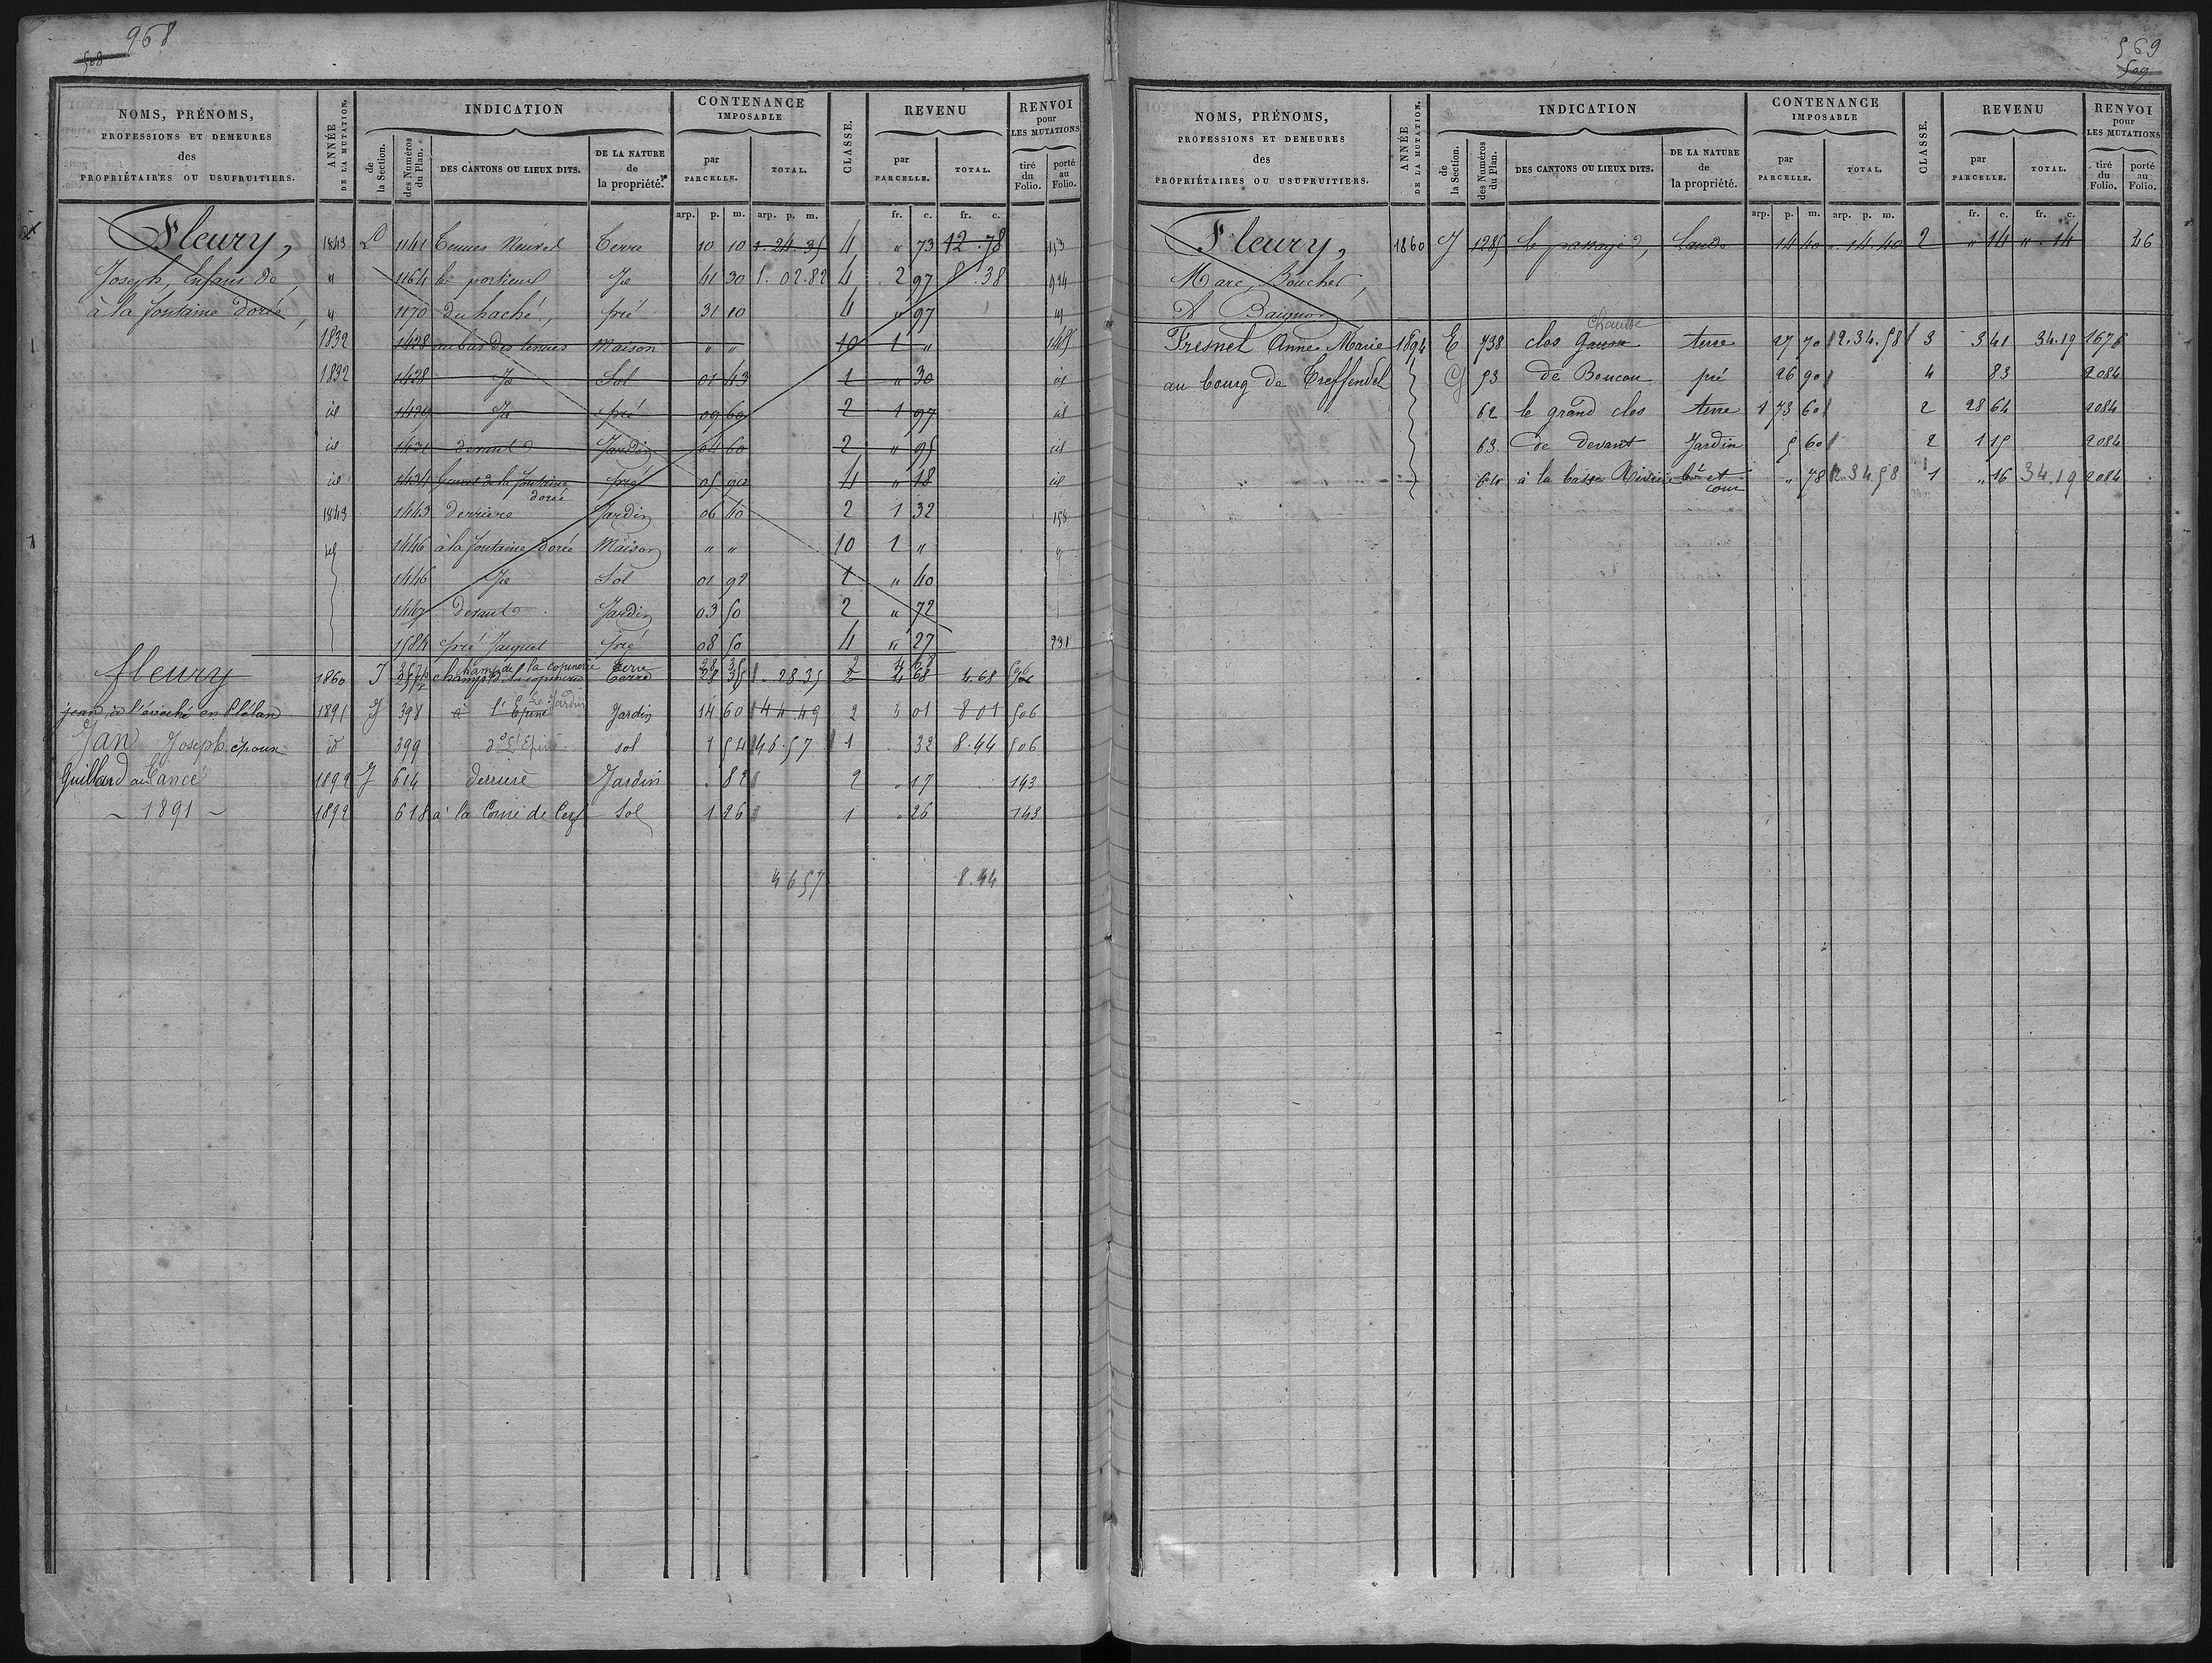 968
508
NOMS, PRÉNOMS,
PROFESSIONS ET DEMEURES
des
PROPRIÉTAIRES OU USUFRUITIERS.
ANNÉE
DE LA MUTATION.
INDICATION
de
la Section.
des Numéros
du Plan.
DES CANTONS OU LIEUX DITS.
DE LA NATURE
de
la propriété.
CONTENANCE
IMPOSABLE
par
PARCELLE.
TOTAL.
CLASSE.
REVENU
par
PARCELLE.
TOTAL.
RENVOI
pour
LES MUTATIONS
tiré
du
Folio.
porté
au
Folio.
arp. p. m. arp. p. m. fr. c. fr. c.
Fleury, 1843 D 1141 Terre 10 10 1. 24. 35 4 " 73 12. 78 153
Joseph, Enfans de " 1164 Id 41 30 1. 02. 82 4 2 97 8. 38
à la fontaine dorée, " 1170 du haché, pré 31 10 4 " 97
1832 1428 au bas des tenues Maison " " 10 1 "
1832 1428 Id Sol 01 43 1 " 30
id 1429 Id pré 09 60 2 1 97 id
id 1431 devant Jardin 04 60 2 " 95 id
id 1434 de la fontaine dorée pré 05 90 4 " 18 id
1843 1443 derriere Jardin 06 40 2 1 32 158
1446 à la fontaine dorée Maison " " 10 1 "
1446 Id Sol 01 92 1 " 40
1447 devant Jardin 03 50 2 " 72
1584 pré Jaiquet pré 08 50 4 " 27 231
champ de la copinerie Terre 28 35 2 4 68
fleury 1860 J Terre 28 35 28. 35 2 4 68 4. 68
jean à l'évêché en Plélan 1891 J 398 à l'Epine Le Jardin Jardin 14 60 44. 49 2 01 8 01 506
Jan Joseph époux id 399 do L'Epine sol 1 54 46. 57 1 32 8. 44 506
Guillard au Cancé 1892 J 614 derriere Jardin . 82 2 . 17 143
– 1891 – 1892 618 à la Corne de Cerf Sol 1 26 1 " 26 143
46 57 8. 44
569
509
NOMS, PRÉNOMS,
PROFESSIONS ET DEMEURES
des
PROPRIÉTAIRES OU USUFRUITIERS.
ANNÉE
DE LA MUTATION.
INDICATION
de
la Section.
des Numéros
du Plan.
DES CANTONS OU LIEUX DITS.
DE LA NATURE
de
la propriété.
CONTENANCE
IMPOSABLE
par
PARCELLE.
TOTAL.
CLASSE.
REVENU
par
PARCELLE.
TOTAL.
RENVOI
pour
LES MUTATIONS
tiré
du
Folio.
porté
au
Folio.
arp. p. m. arp. p. m. fr. c. fr. c.
Fleury, 1860 J 1285 le passage, lande 14 40 . 14. 40 2 " 14 ". 14 26
Marc, Boucher,
A Baignon
Chausse
Fresnel Anne Marie 1894 E 738 clos terre 27 70 2. 34. 58 3 3 41 34. 19 1676
au bourg de Treffendel G 53 de Boucou pré 26 90 4 83 2084
62 le grand clos terre 1 73 60 2 28 64 2084
63 de devant Jardin 5 60 2 1 15 2084
64 à la basse Rivière bt et cour " 78 2. 34 58 1 " 16 34. 19 2084